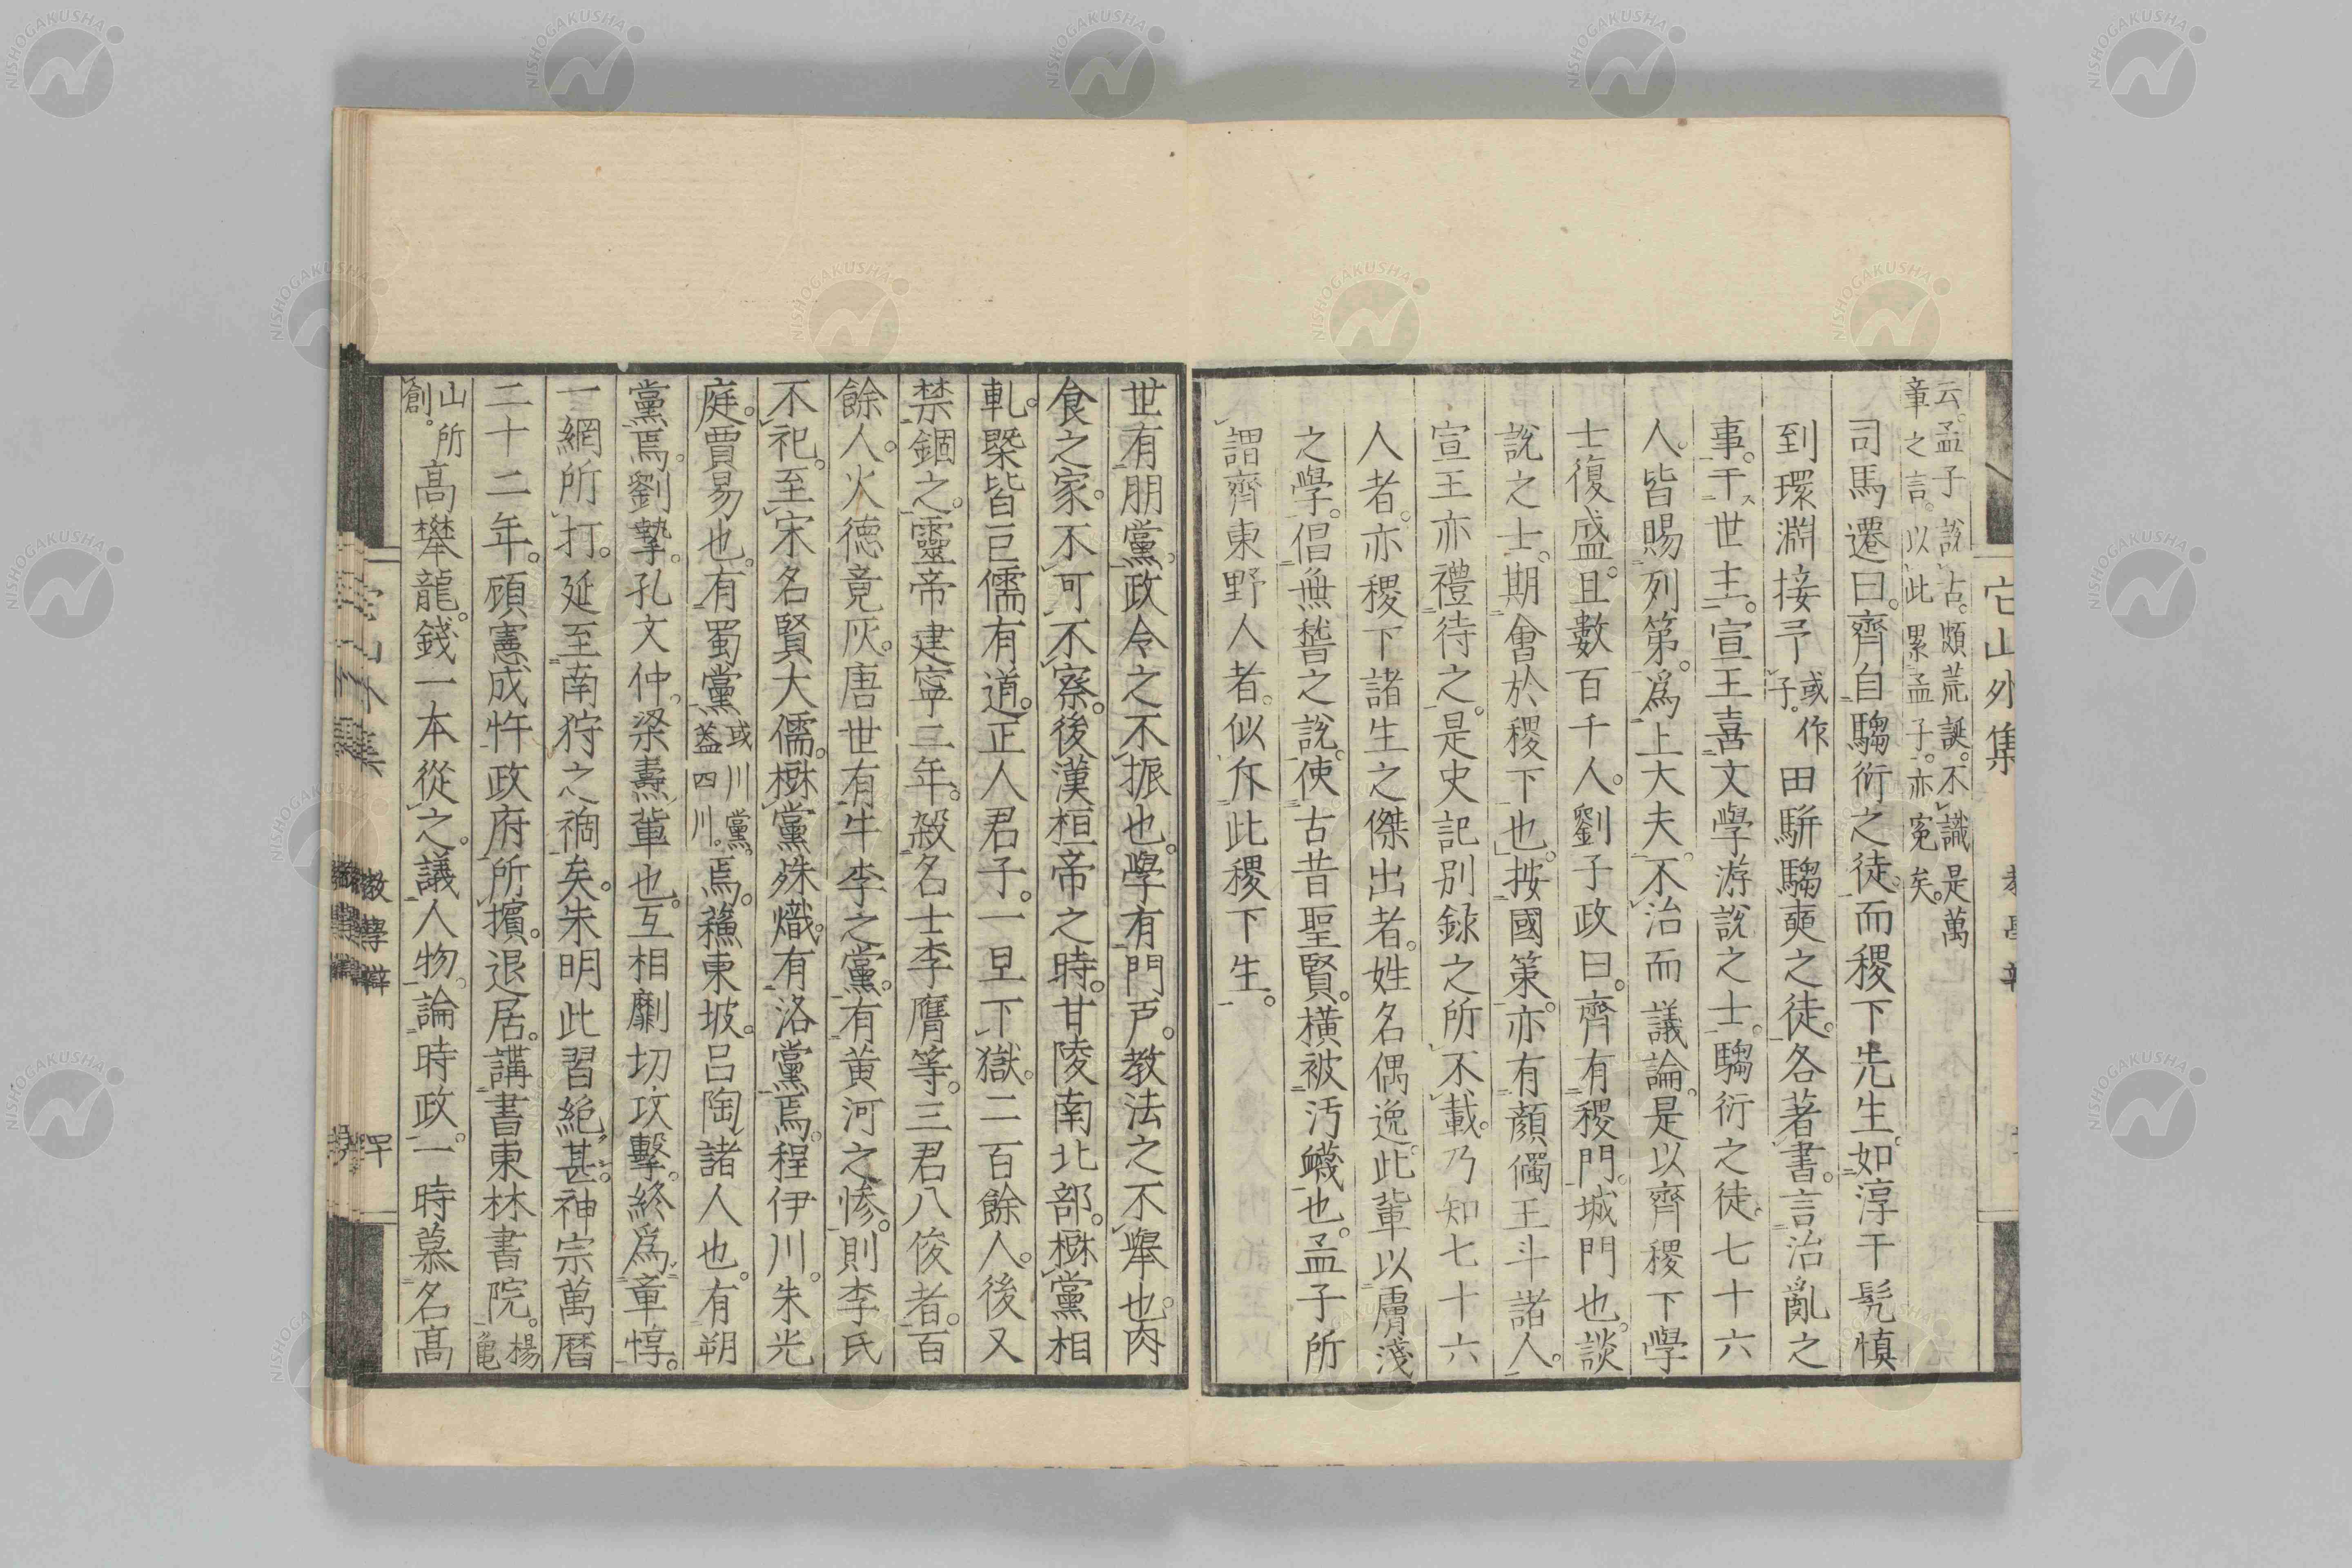 云。孟子說占。頗荒誕。不識是萬
章之言。以此累孟子。亦冤矣。
司馬遷曰。齊自騶衍之徒。而稷下先生。如淳于髠慎
到環淵接予或作子。田駢騶奭之徒。各著書。言治亂之
事。干世主。宣王喜文學游說之士。騶衍之徒。七十六
人。皆賜列第。爲上大夫。不治而議論。是以齊稷下學
士復盛。且數百千人。劉子政曰。齊有稷門。城門也。談
說之士。期會於稷下也。按國策。亦有顔斶王斗諸人。
宣王亦禮待之。是史記別録之所不載。乃知七十六
人者。亦稷下諸生之傑出者。姓名偶逸。此輩以膚淺
之學。倡無瞽之說。使古昔聖賢。橫被汚衊也。孟子所
謂齊東野人者。似斥此稷下生。
世有朋黨。政令之不振也。學有門戸。教法之不舉也。肉
食之家。不可不察。後漢桓帝之時。甘陵南北部。楙黨相
軋。槩皆巨儒有道。正人君子。一旦下獄。二百餘人。後又
禁錮之。靈帝建寧三年。殺名士李膺等。三君八俊者。百
餘人。火德竟灰。唐世有牛李之黨。有黄河之慘。則李氏
不祀。至宋名賢大儒。楙黨殊熾。有洛黨焉。程伊川。朱光
庭。賈易也。有蜀黨或川黨。蓋四川。焉。蘇東坡。呂陶諸人也。有朔
黨焉。劉摯。孔文仲。梁燾輩也。互相劘切攻擊。終爲章惇。
一網所打。延至南狩之禍矣。朱明此習絕甚。神宗萬曆
二十二年。頋憲成忤政府所擯。退居。講書東林書院。楊亀
山所創。高攀龍。錢一本從之。議人物。論時政。一時慕名高
它山外集